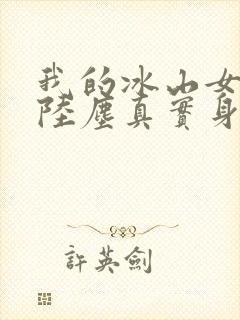 我的冰山女
陸塵真實身
許英劍